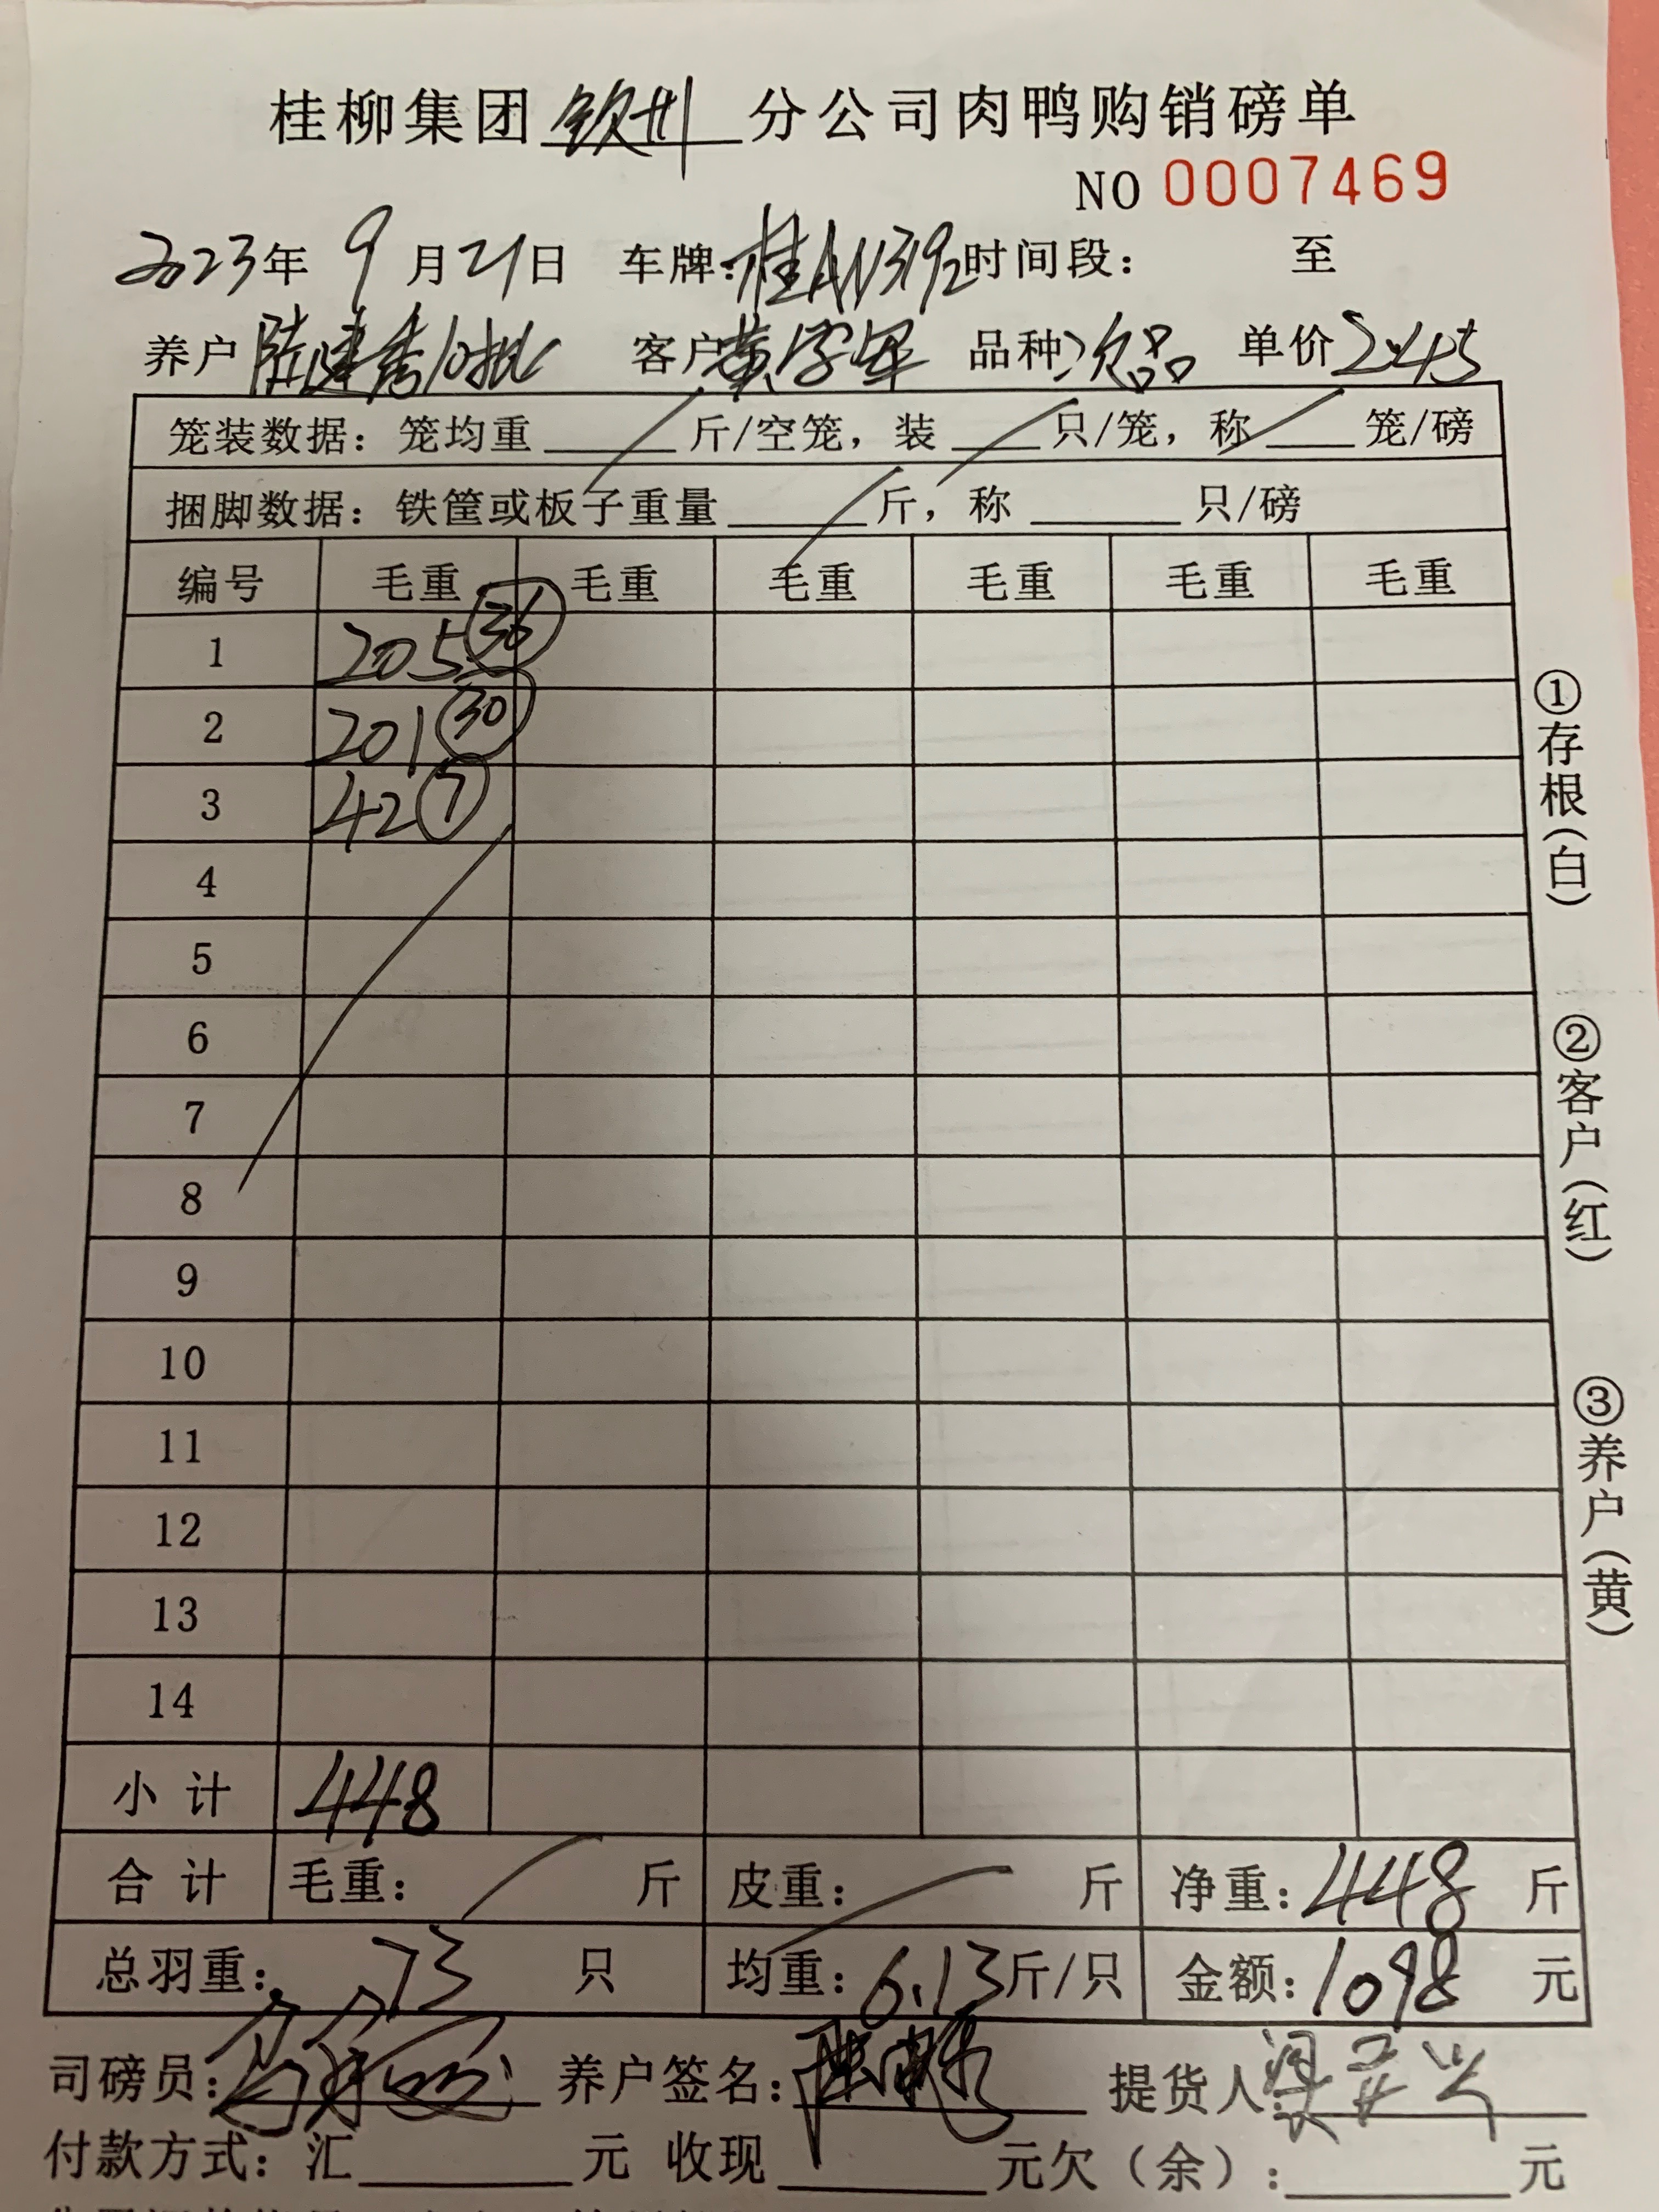 桂柳集团钦州分公司肉鸭购销磅单
NO 0007469
2023年 9月21日 车牌:桂AN3192时间段: 至
养户 陆建秀10批 客户 黄学军 品种 次品 单价 2.45
笼装数据: 笼均重 斤/空笼, 装 只/笼, 称 笼/磅
捆脚数据: 铁筐或板子重量 斤, 称 只/磅
编号 毛重 毛重 毛重 毛重 毛重 毛重
1 205 36
2 201 30
3 42 7
4
5
6
7
8
9
10
11
12
13
14
小计 448
合计 毛重: 斤 皮重: 斤 净重: 448 斤
总羽重: 73 只 均重: 6.13斤/只 金额: 1098 元
司磅员: 养户签名: 提货人:
付款方式: 汇 元 收现 元欠(余): 元
①存根(白)
②客户(红)
③养户(黄)